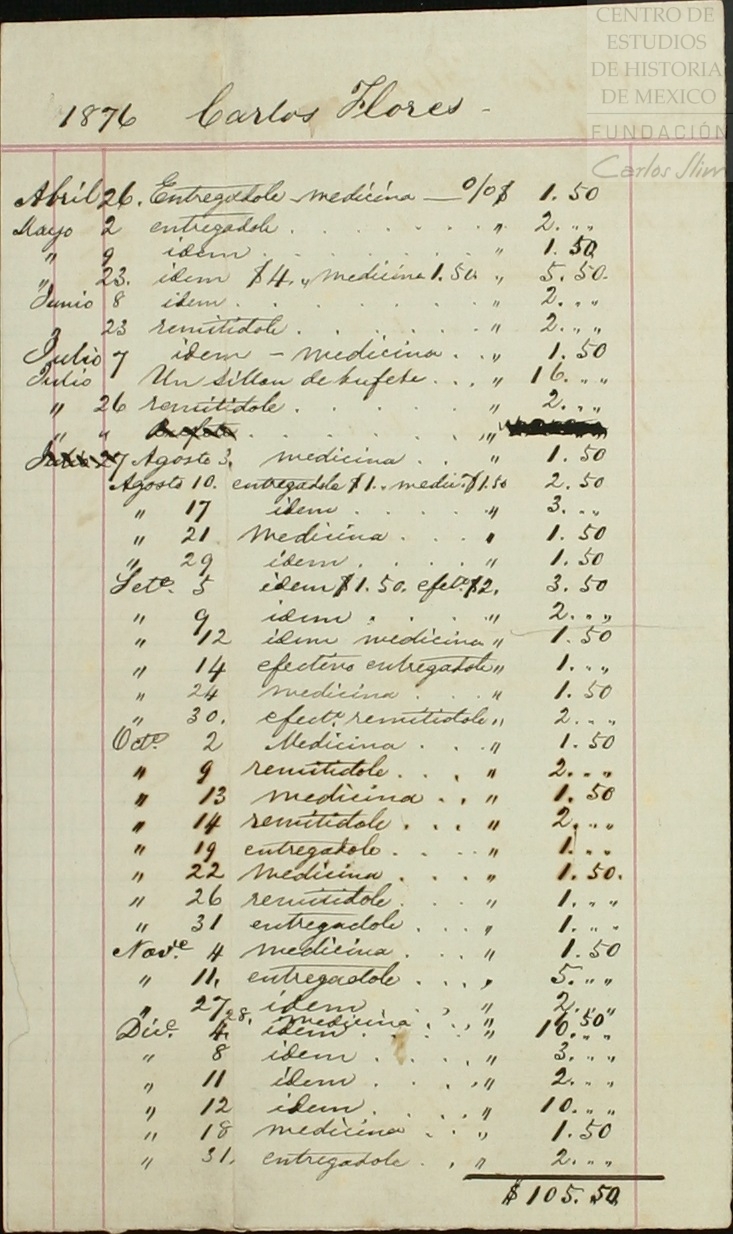 CENTRO DE
ESTUDIOS
DE HISTORIA
DE MEXICO
FUNDACIÓN
Carlos Slim
1876 Carlos Flores -
Abril 26. Entregadole - medicina — o/o $ 1.50
Mayo 2 entregadole . . . . . . . „ 2. „ „
„ 9 idem . . . . . . . „ 1.50
„ 23. idem $4 „ medicina 1.50. „ 5.50.
Junio 8 idem . . . . . . . „ 2. „ „
23 remitidole . . . . . . „ 2. „ „
Julio 7 idem - medicina . . „ 1.50
Julio Un sillon de bufete . . . „ 16. „ „
„ 26 remitidole . . . . . . „ 2. „ „
„ „ . . . . . . „
Julio 27 Agosto 3. medicina . . „ 1.50
Agosto 10. entregadole $1 „ medic. $1.50 2.50
„ 17 idem . . . . . „ 3. „ „
„ 21 medicina . . . „ 1.50
„ 29 idem . . . . . „ 1.50
Sete. 5 idem $1.50. efete. $2. 3.50
„ 9 idem . . . . . „ 2. „ „
„ 12 idem medicina „ 1.50
„ 14 efectivo entregadole „ 1. „ „
„ 24 medicina . . . „ 1.50
„ 30. efecte. remitidole „ 2. „ „
Octe. 2 Medicina . . . „ 1.50
„ 9 remitidole . . . „ 2. „ „
„ 13 medicina . . „ 1.50
„ 14 remitidole . . . „ 2. „ „
„ 19 entregadole . . . „ 1. „ „
„ 22 Medicina . . . „ 1.50.
„ 26 remitidole . . . „ 1. „ „
„ 31 entregadole . . . „ 1. „ „
Nove. 4 medicina . . . „ 1.50
„ 11. entregadole . . . „ 5. „ „
„ 27 idem . . „ 2. „ „
28. medicina . . „ 1.50
Dice. 4. idem . . . . „ 10. „ „
„ 8 idem . . . . „ 3. „ „
„ 11 idem . . . . „ 2. „ „
„ 12 idem . . . . „ 10. „ „
„ 18 medicina . . „ 1.50
„ 31. entregadole . . „ 2. „ „
$ 105.50